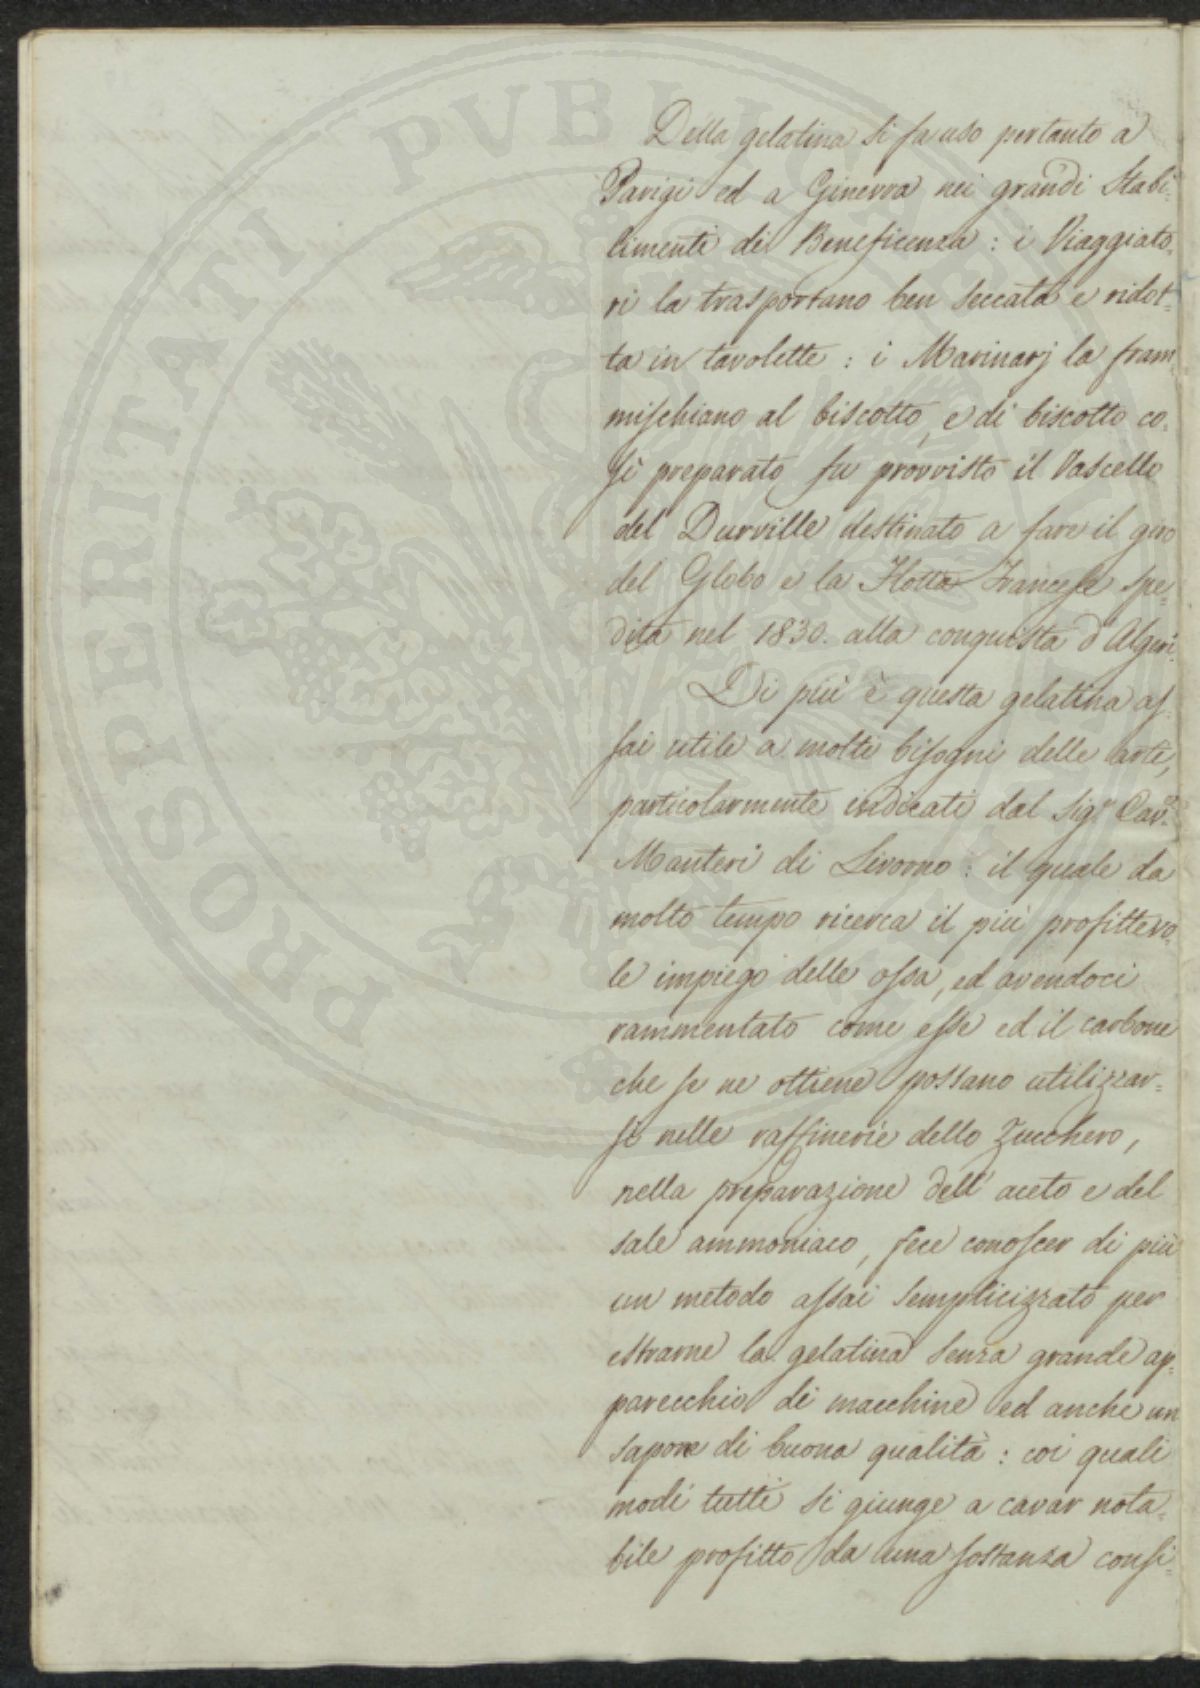 Della gelatina si fa uso pertanto a
Parigi ed a Ginevra nei grandi Stabi=
limenti di Beneficenza : i Viaggiato=
ri la trasportano ben seccata e ridot=
ta in tavolette : i Marinarj la fram=
mischiano al biscotto, e di biscotto co=
sì preparato fu provvisto il Vascello
del Durville destinato a fare il giro
del Globo e la Flotta Francese spe=
dita nel 1830. alla conquista d'Algeri.
Di più è questa gelatina as=
sai utile a molti bisogni delle arti,
particolarmente indicati dal Sigr Cav.
Manteri di Livorno : il quale da
molto tempo ricerca il più profittevo=
le impiego delle ossa, ed avendoci
rammentato come esse ed il carbone
che se ne ottiene possano utilizzar=
si nelle raffinerie dello Zucchero,
nella preparazione dell' aceto e del
sale ammoniaco, fece conoscer di più
un metodo assai semplicizzato per
estrarne la gelatina senza grande ap=
parecchio di macchine ed anche un
sapone di buona qualità : coi quali
modi tutti si giunge a cavar nota=
bile profitto da una sostanza consi=
PROSPERITATI PVBLICAE